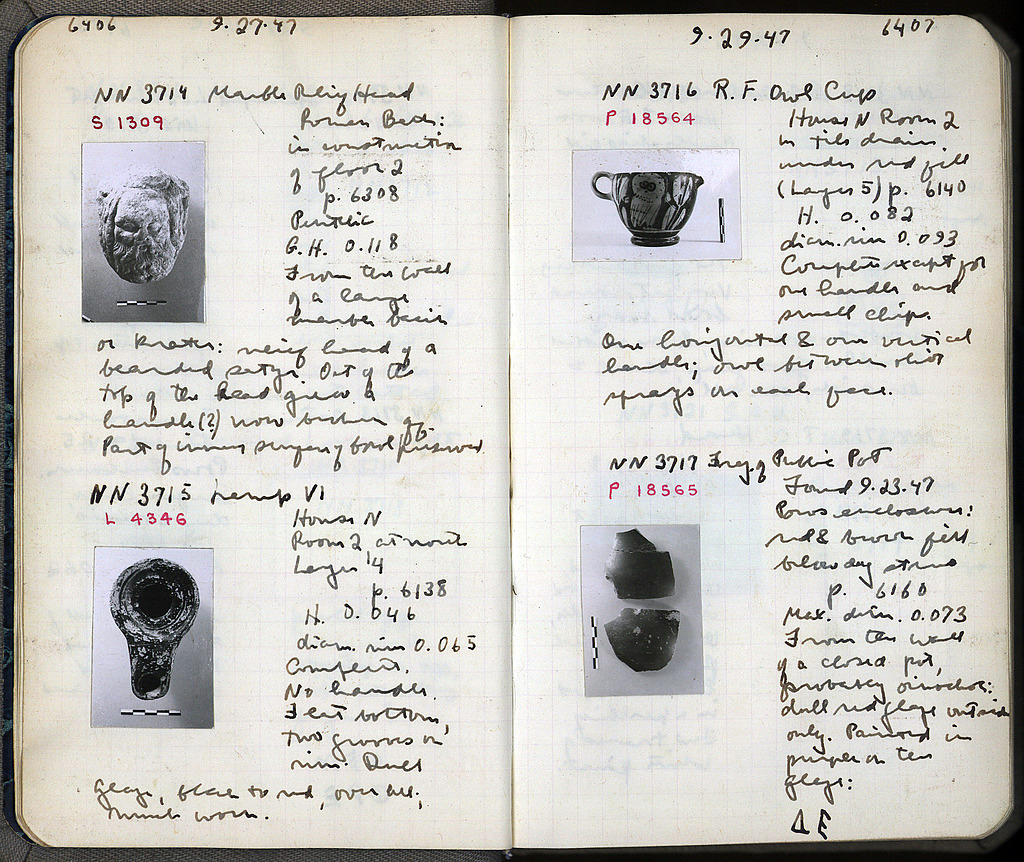 6406 9.27.47
NN 3714 Marble Relief Head
S 1309
Roman Bath:
in construction
of floor 2
p. 6308
Pentelic
G.H. 0.118
From the wall
of a large
marble basin
or krater: relief head of a
bearded satyr. Out of the
top of the head grew a
handle (?) now broken off.
Part of inner surface of bowl preserved
NN 3715 Lamp VI
L 4346
House N
Room 2 at north
Layer 4
p. 6138
H. 0.046
diam. rim 0.065
Complete.
No handle.
Flat bottom,
two grooves on
rim. Dull
glaze, black to red, over all,
much worn.
9.29.47 6407
NN 3716 R.F. Owl Cup
P 18564
House N Room 2
in tile drain,
under red fill
(Layer 5) p. 6140
H. 0.082
diam. rim 0.093
Complete except for
one handle and
small chips.
One horizontal & one vertical
handle; owl between olive
sprays on each face.
NN 3717 Frag. of Public Pot
P 18565
Found 9.23.47
Poros enclosure:
red & brown fill
below dog stele
p. 6160
Max. dim. 0.073
From the wall
of a closed pot,
probably oinochoe:
dull red glaze outside
only. Painted in
purple on the
glaze:
ΔΕ